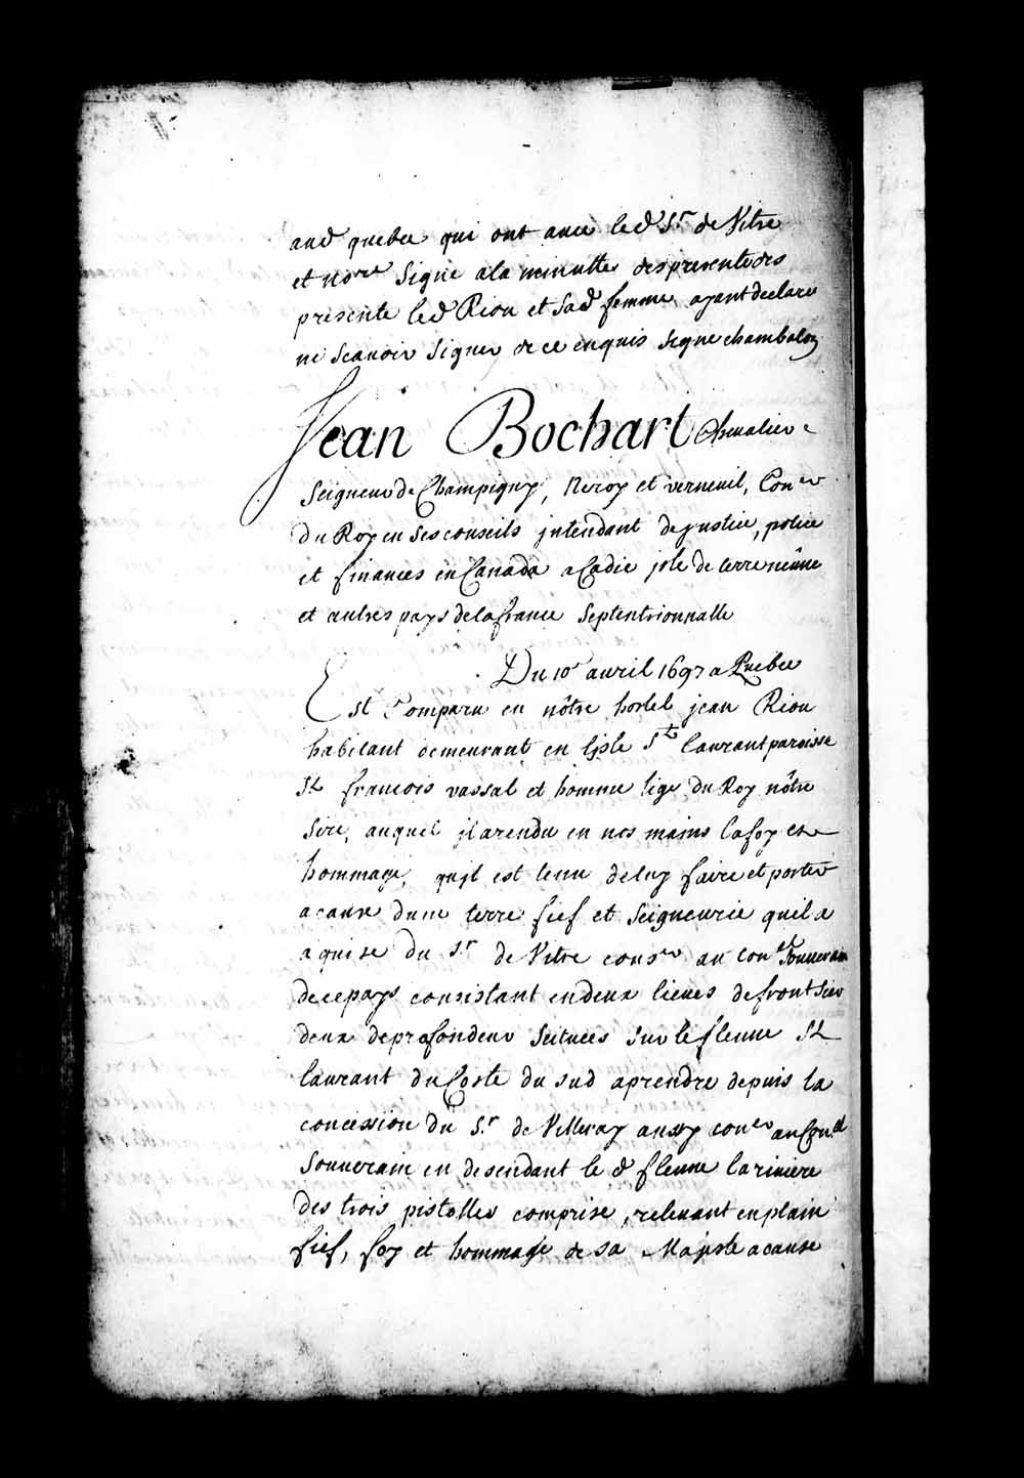 aud quebec qui ont avec led Sr de Vitre
et nore Signé a la minutte des presentes des
presente led Riou et Sad femme, ayant declaré
ne Scauoir Signer de ce enquis Signe chambalon
Jean Bochart Cheualier
Seigneur de Champigny, Noroy et verneuil, Coner
du Roy en Ses conseils jntendant de justice, police
et finances en Canada acadie jsle de terre neuue
et autres pays de la france Septentrionnalle
Du 10e auril 1697 a Quebec
Est Comparu en nôtre hostel jean Riou
habitant demeurant en ljsle St laurant paroisse
St francois vassal et homme lige du Roy nôtre
Sire, auquel jl a rendu en nos mains la foy et
hommage, qujl est tenu de luy faire et porter
a cause dune terre fief et Seigneurie quil a
aquise du Sr de Vitre conser au conel Souuerain
de ce pays consistant en deux lieues de front Sur
deux de profondeur Scituées Sur le fleuue St
laurant du Coste du sud a prendre depuis la
concession du Sr de Villeray aussy coner au Conel
Souuerain en descendant le d fleuue la riuiere
des trois pistolles comprise, releuant en plain
fief, foy et hommage de sa Majeste a cause